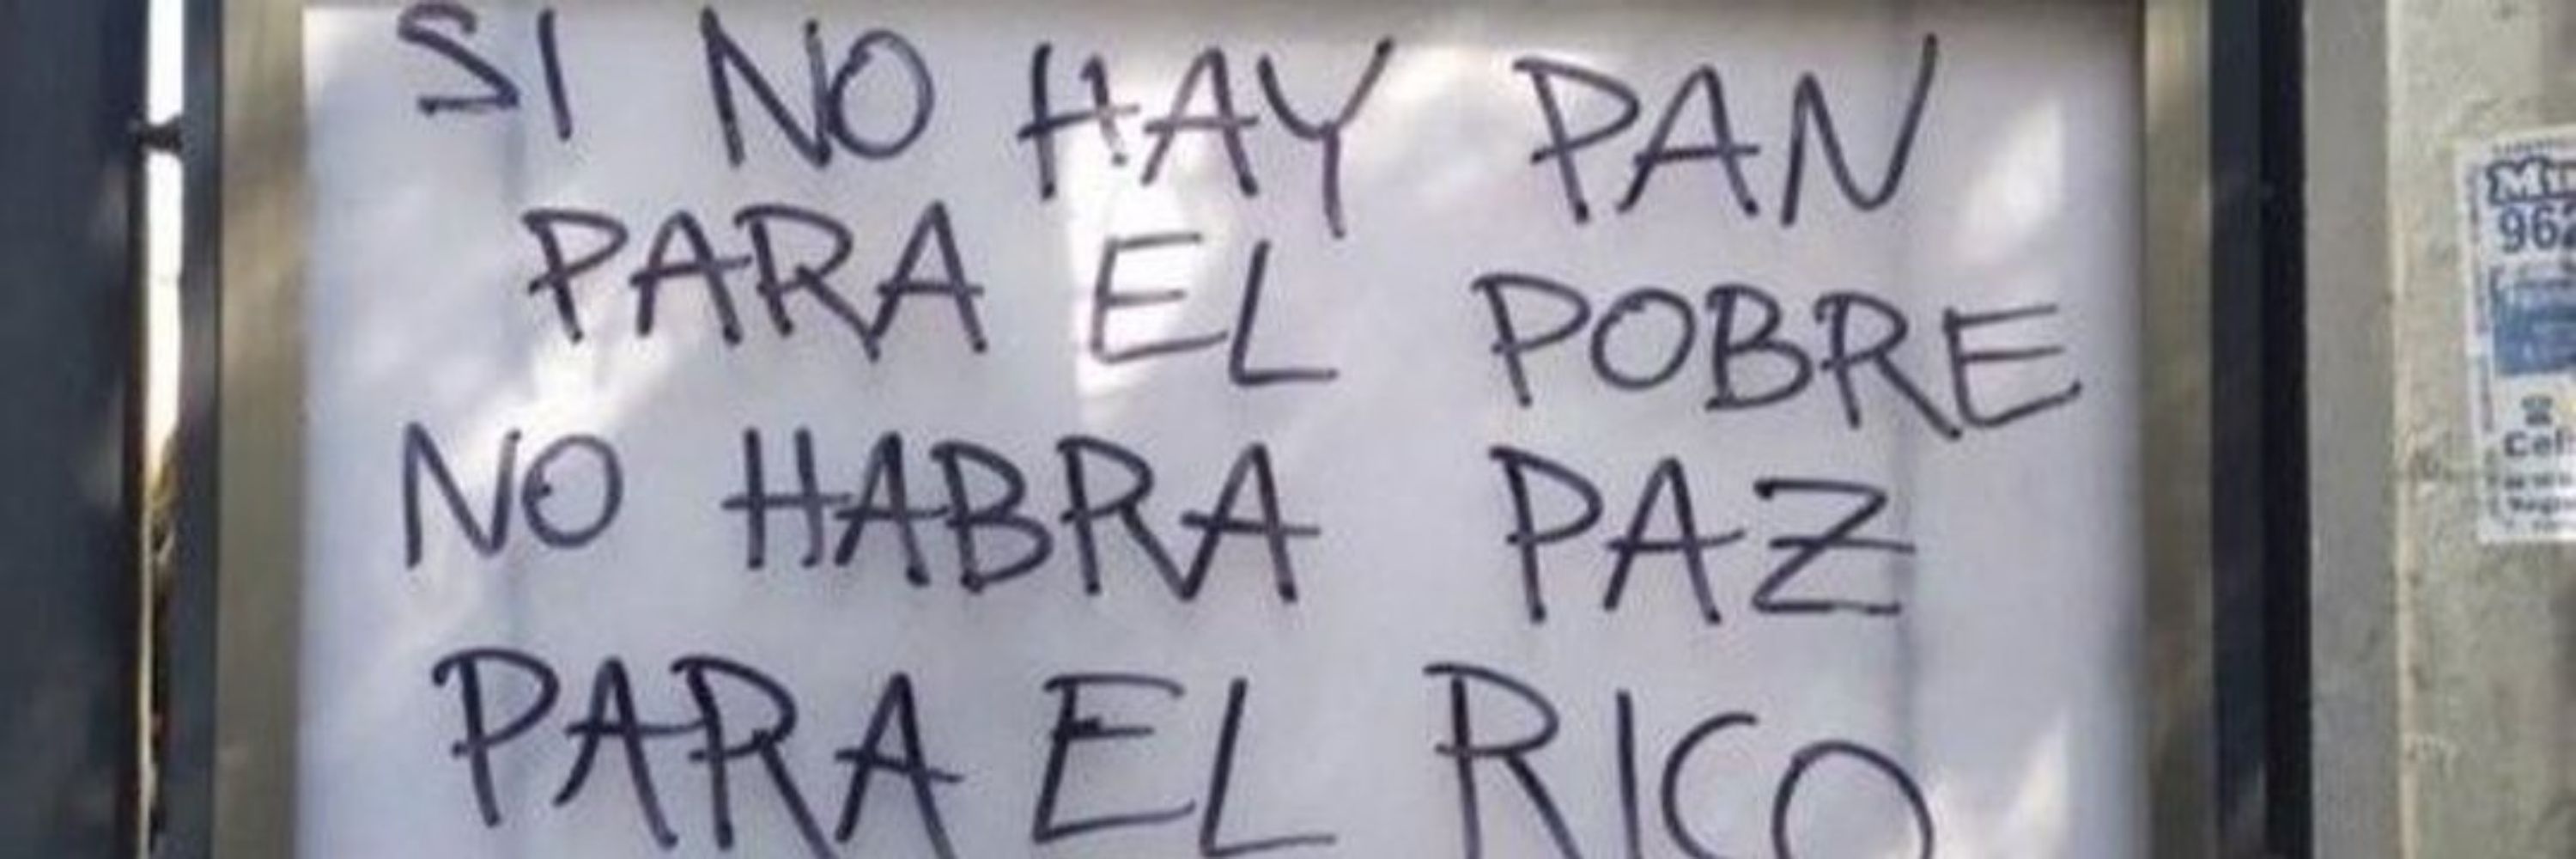 SI NO HAY PAN
PARA EL POBRE
NO HABRA PAZ
PARA EL RICO
96